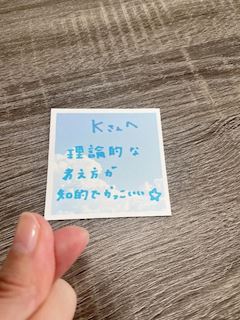 Kさんへ
理論的な
考え方が
知的でかっこいい☆